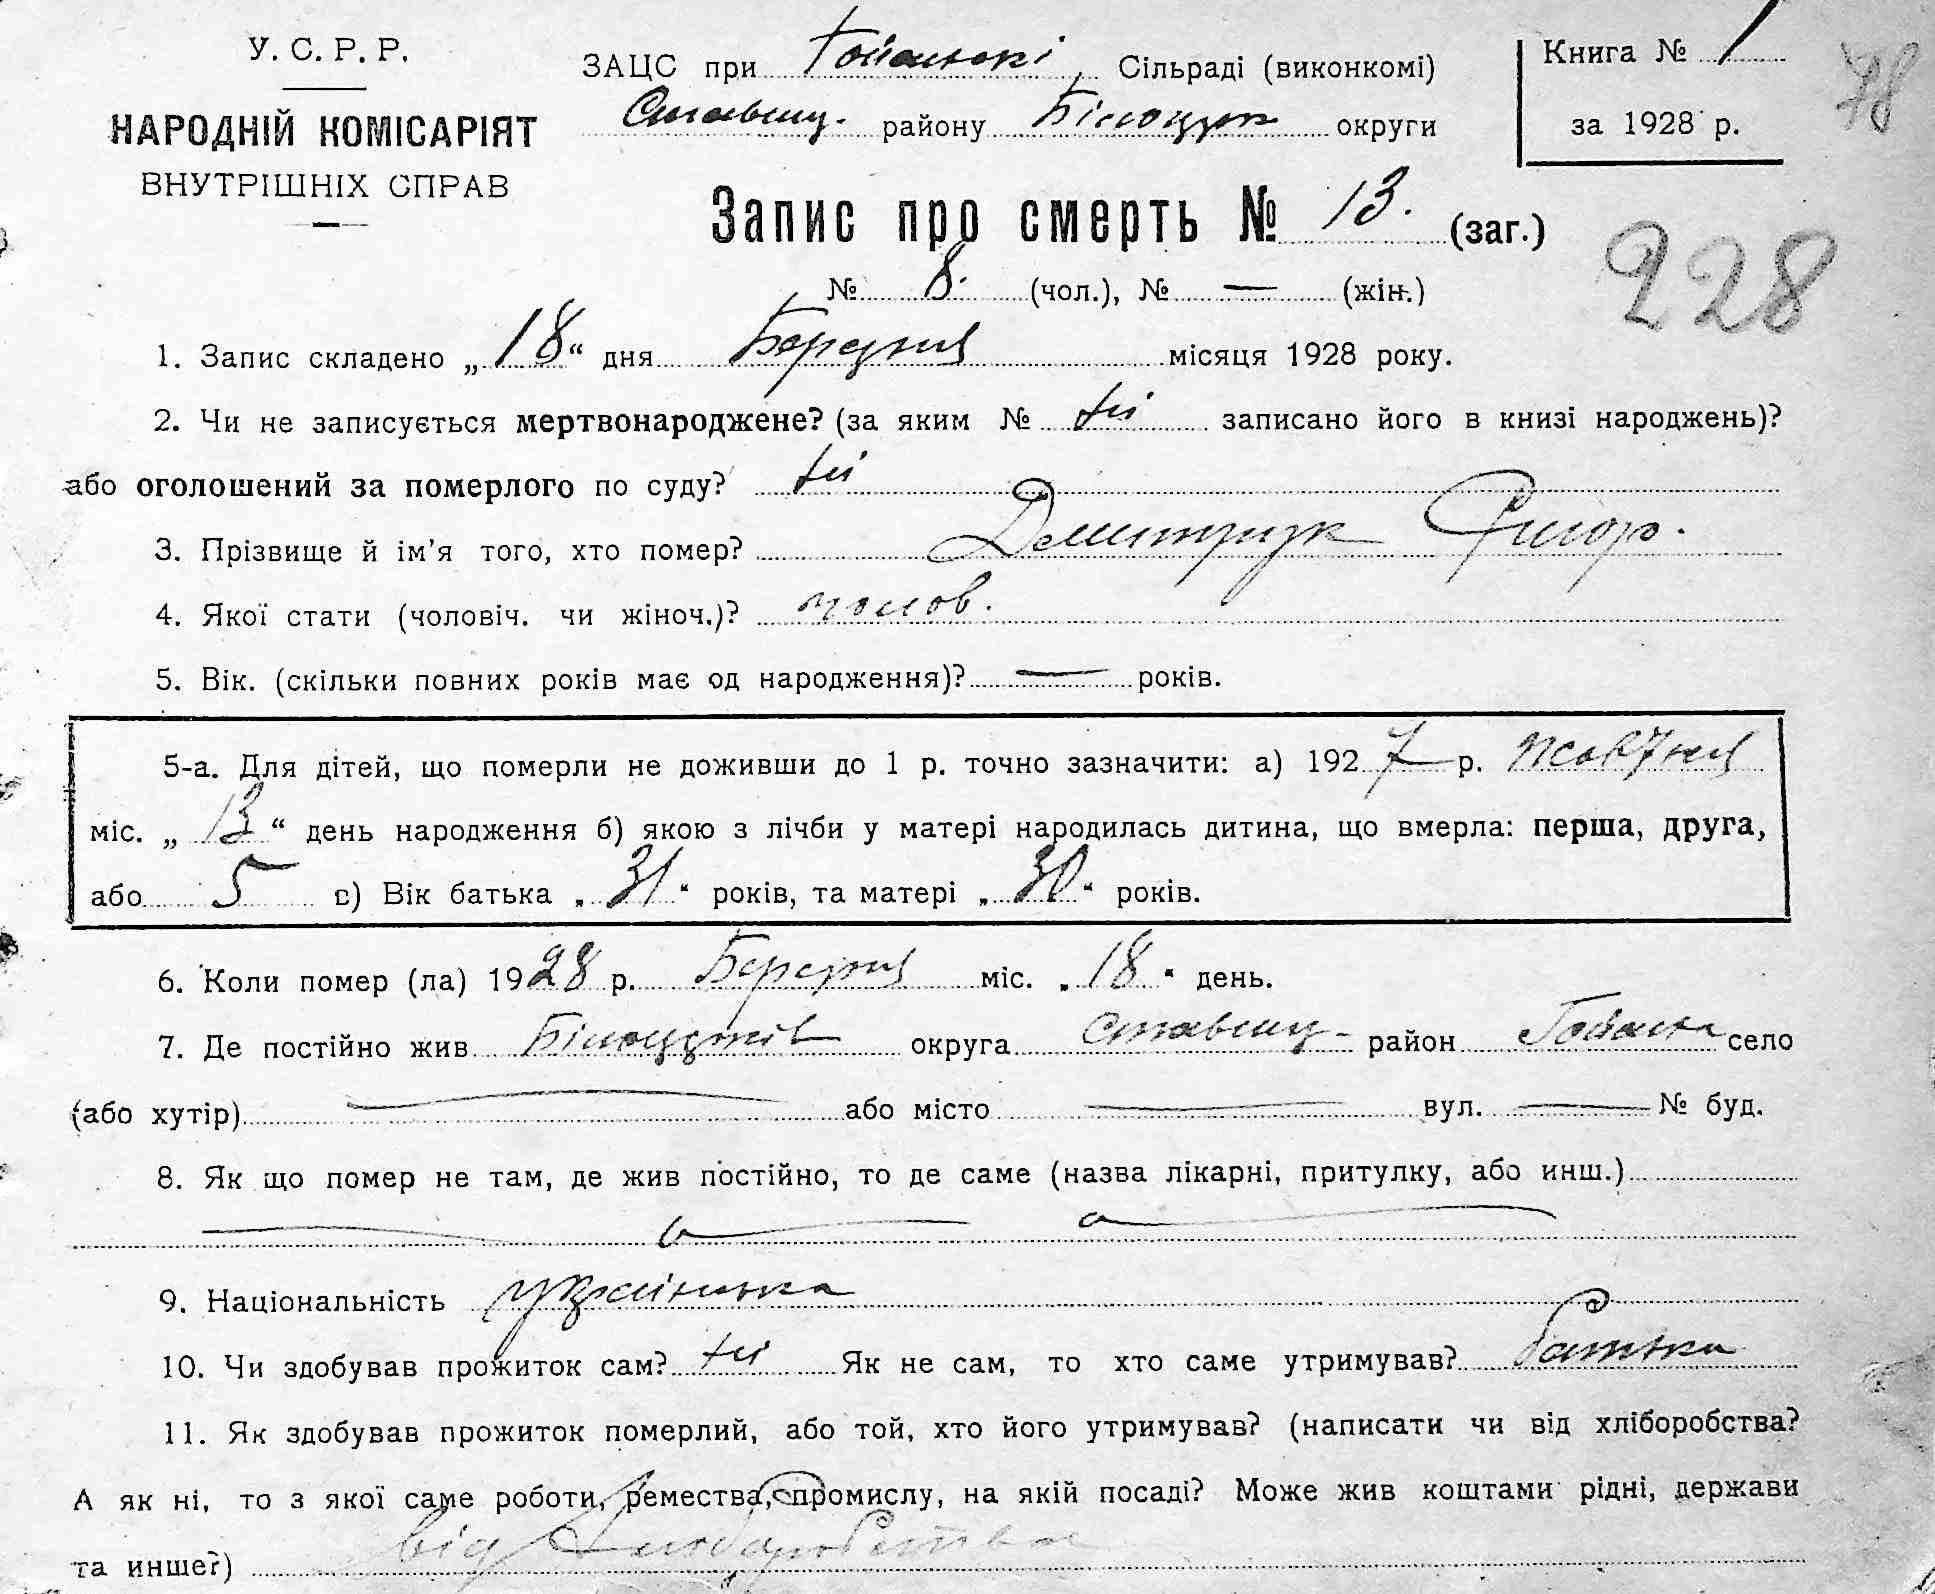 У. С. Р. Р.
НАРОДНІЙ КОМІСАРІЯТ
ВНУТРІШНІХ СПРАВ
ЗАЦС при Гойанські Сільраді (виконкомі)
Ставищ. району Білоцерк округи
Книга № 1
за 1928 р.
78
Запис про смерть № 13. (заг.)
228
№ 8. (чол.), № — (жін.)
1. Запис складено „18“ дня Березня місяця 1928 року.
2. Чи не записується мертвонароджене? (за яким № ні записано його в книзі народжень)?
або оголошений за померлого по суду? ні
3. Прізвище й ім’я того, хто помер? Дмитрук Григор.
4. Якої стати (чоловіч. чи жіноч.)? чолов.
5. Вік. (скільки повних років має од народження)? — років.
5-а. Для дітей, що померли не доживши до 1 р. точно зазначити: а) 1927 р. Жовтня
міс. „13“ день народження б) якою з лічби у матері народилась дитина, що вмерла: перша, друга,
або 5 с) Вік батька „31“ років, та матері „30“ років.
6. Коли помер (ла) 1928 р. Березня міс. „18“ день.
7. Де постійно жив Білоцерків округа Ставищ- район село
(або хутір) — або місто — вул. — № буд.
8. Як що помер не там, де жив постійно, то де саме (назва лікарні, притулку, або инш.)
9. Національність українська
10. Чи здобував прожиток сам? ні Як не сам, то хто саме утримував? батьки
11. Як здобував прожиток померлий, або той, хто його утримував? (написати чи від хліборобства?
А як ні, то з якої саме роботи, ремества, промислу, на якій посаді? Може жив коштами рідні, держави
та инше?) від хліборобства